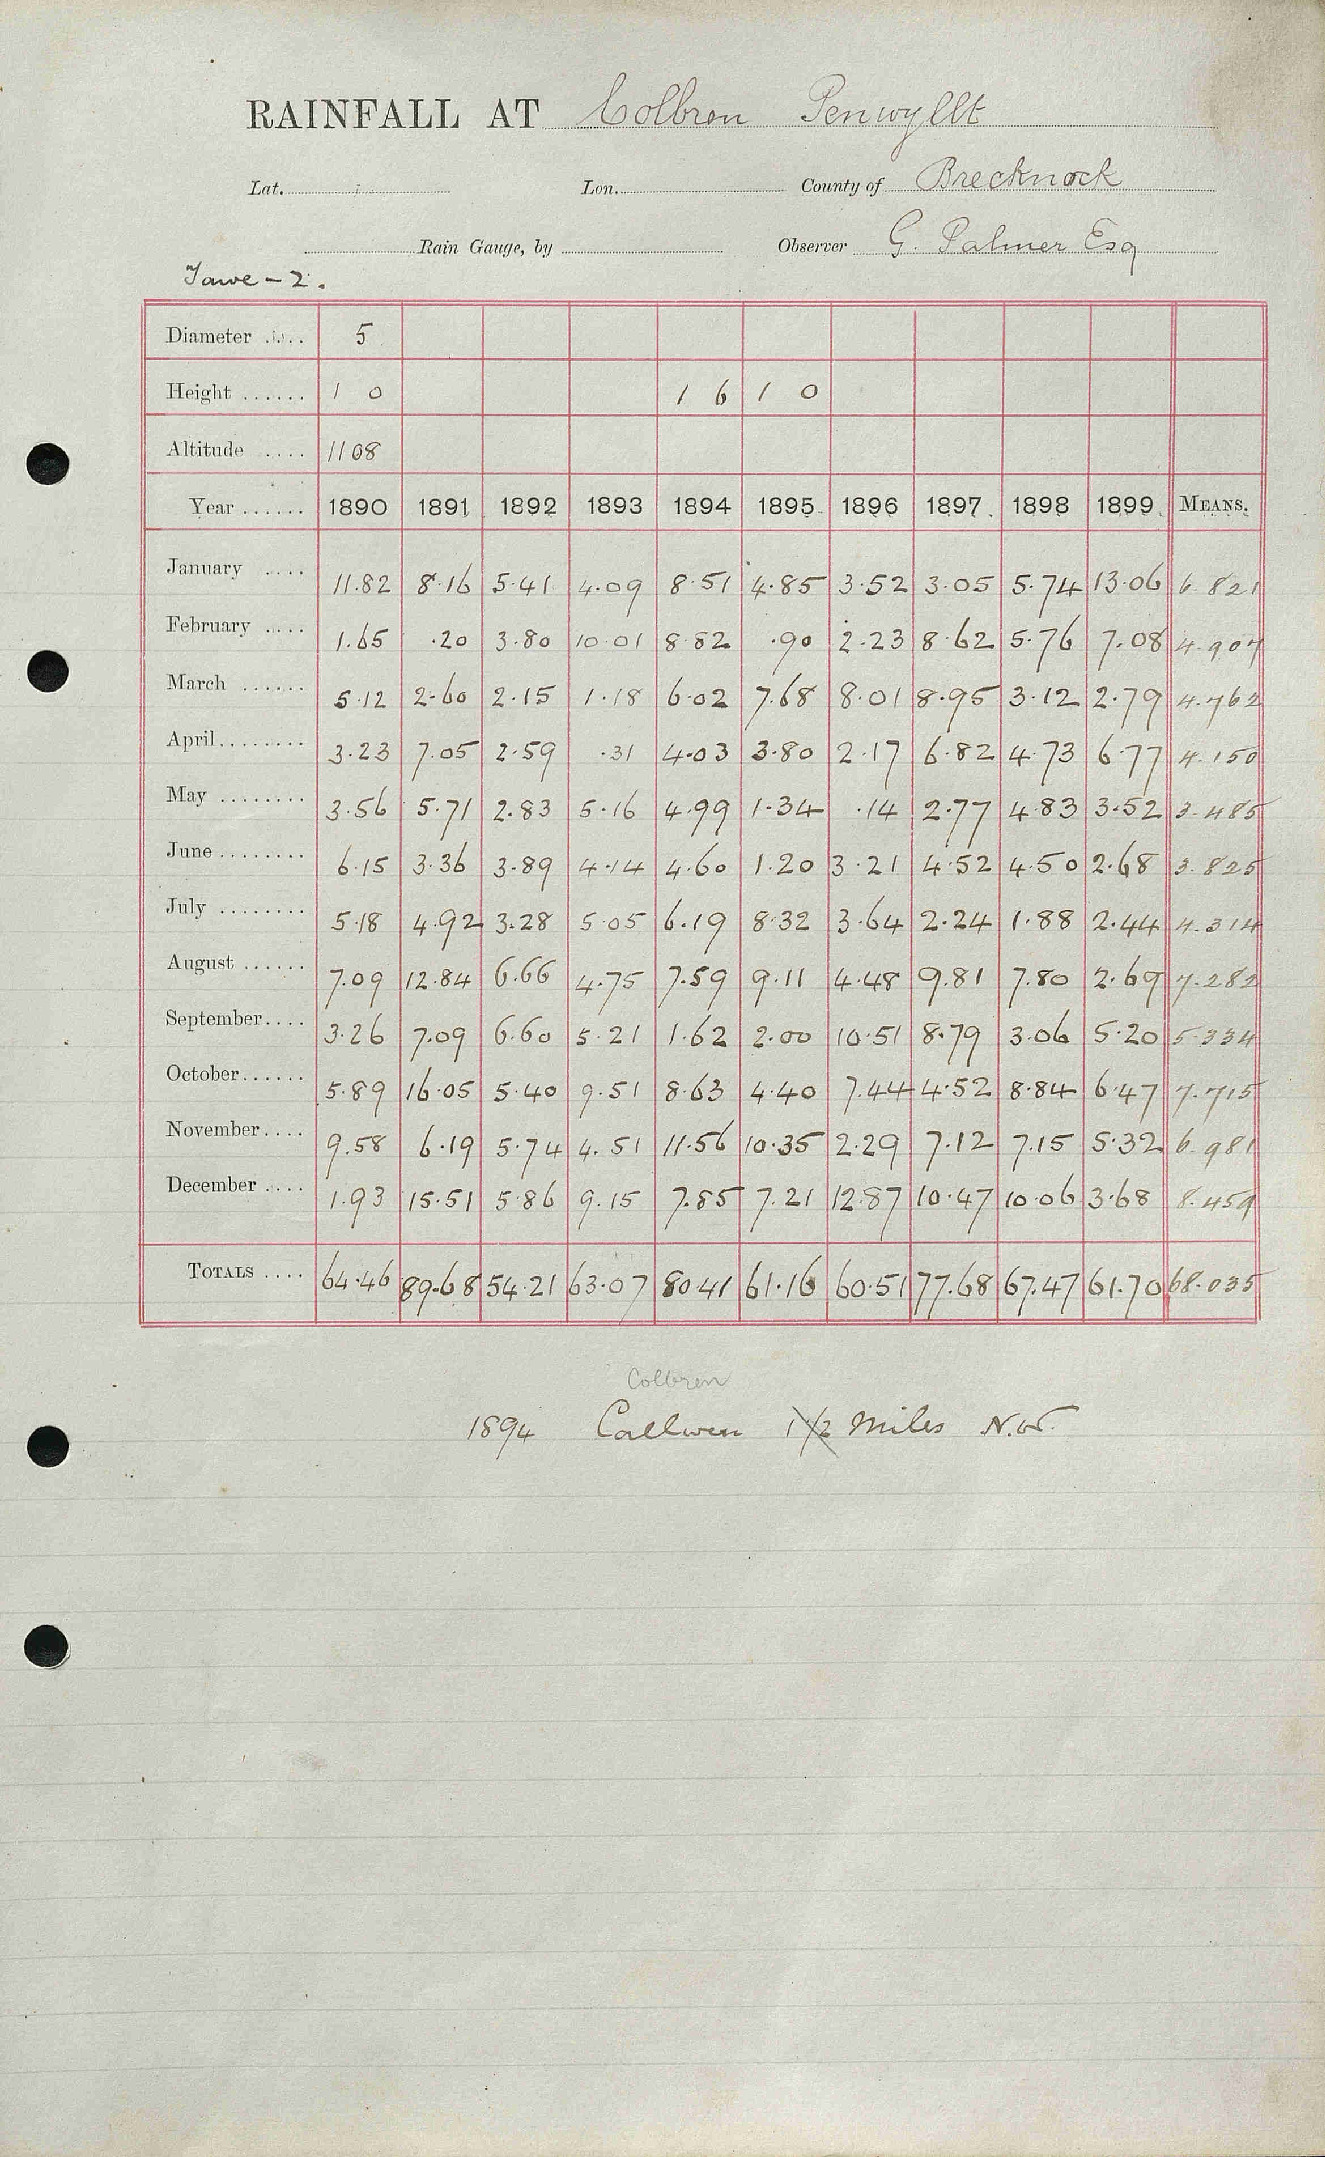 RAINFALL AT Colbren Penwyllt
Lat. Lon. County of Brecknock
Rain Gauge, by Observer G. Palmer Esq
Tawe - 2.
Diameter .... 5
Height ...... 1 0 1 6 1 0
Altitude .... 1108
Year ...... 1890 1891 1892 1893 1894 1895 1896 1897 1898 1899 MEANS.
January .... 11.82 8.16 5.41 4.09 8.51 4.85 3.52 3.05 5.74 13.06 6.821
February .... 1.65 .20 3.80 10.01 8.82 .90 2.23 8.62 5.76 7.08 4.907
March ...... 5.12 2.60 2.15 1.18 6.02 7.68 8.01 8.95 3.12 2.79 4.762
April........ 3.23 7.05 2.59 .31 4.03 3.80 2.17 6.82 4.73 6.77 4.150
May ........ 3.56 5.71 2.83 5.16 4.99 1.34 .14 2.77 4.83 3.52 3.485
June ........ 6.15 3.36 3.89 4.14 4.60 1.20 3.21 4.52 4.50 2.68 3.825
July ........ 5.18 4.92 3.28 5.05 6.19 8.32 3.64 2.24 1.88 2.44 4.314
August ...... 7.09 12.84 6.66 4.75 7.59 9.11 4.48 9.81 7.80 2.69 7.282
September.... 3.26 7.09 6.60 5.21 1.62 2.00 10.51 8.79 3.06 5.20 5.334
October...... 5.89 16.05 5.40 9.51 8.63 4.40 7.44 4.52 8.84 6.47 7.715
November.... 9.58 6.19 5.74 4.51 11.56 10.35 2.29 7.12 7.15 5.32 6.981
December .... 1.93 15.51 5.86 9.15 7.85 7.21 12.87 10.47 10.06 3.68 8.459
TOTALS .... 64.46 89.68 54.21 63.07 80.41 61.16 60.51 77.68 67.47 61.70 68.035
Colbren
1894 Callwen 1 1/2 Miles N.W.